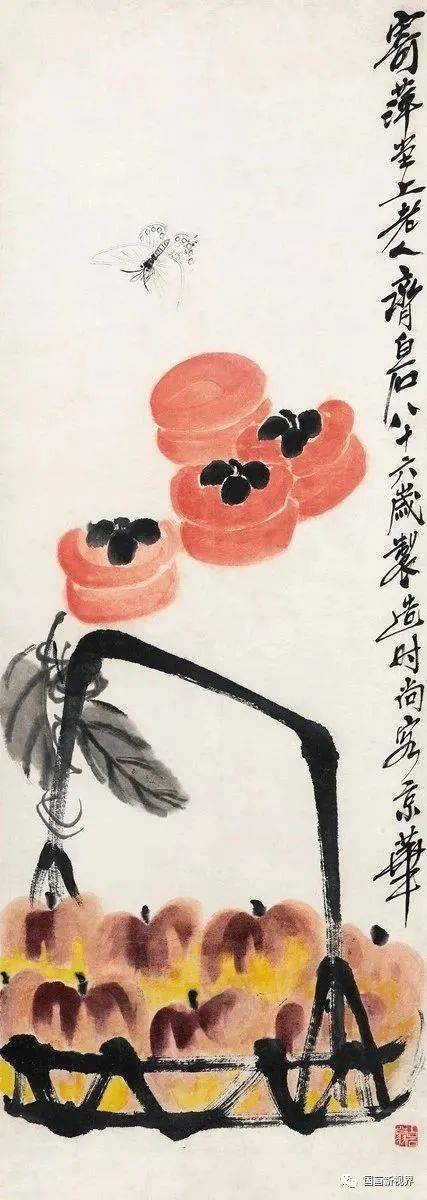 寄萍堂上老人齊白石八十六歲製造时尚客京華
国画新视界